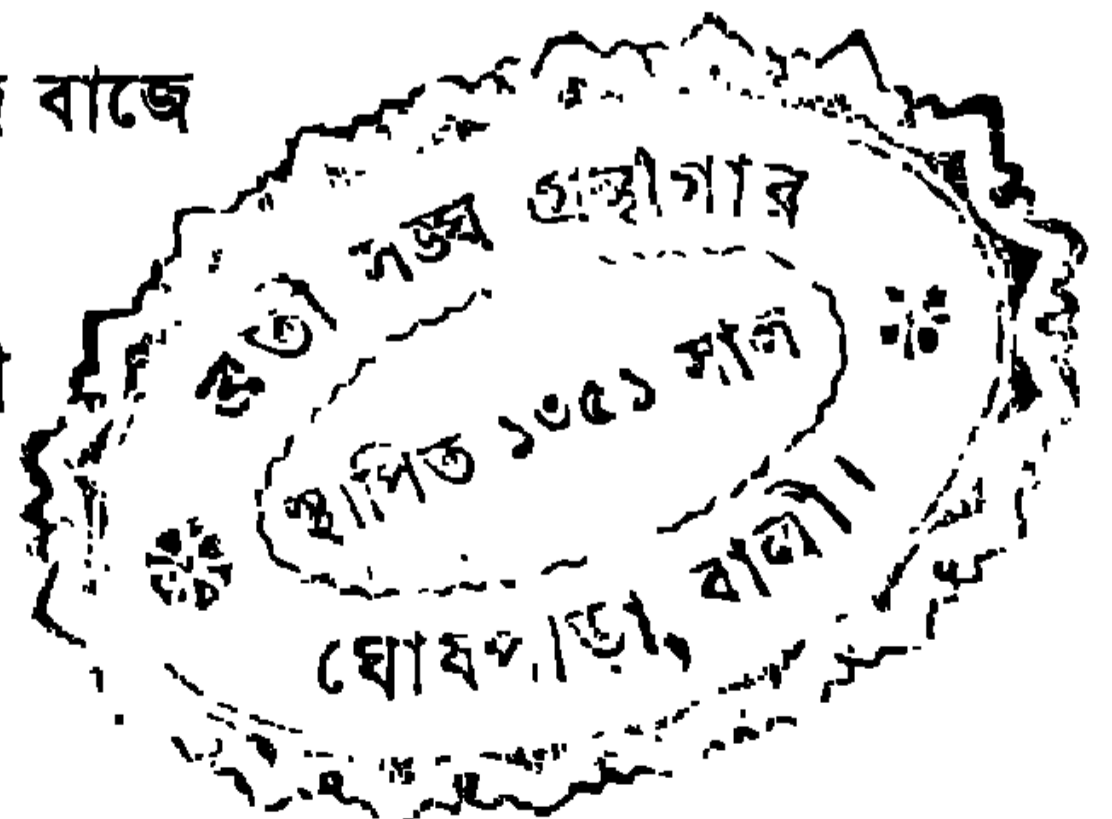 বাজে
ব্রতী সঙ্ঘ গ্রন্থাগার
স্থাপিত ১৩৫১ সাল
ঘোষপাড়া, বালী।